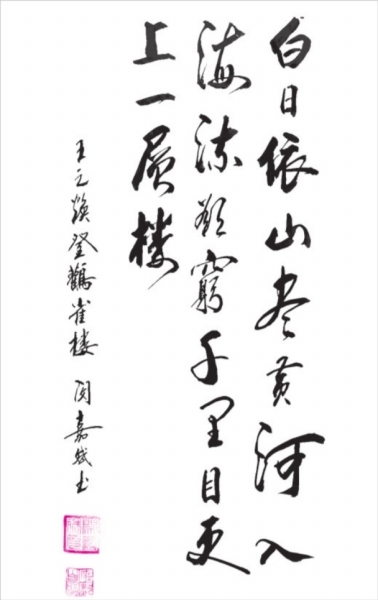 白日依山尽黄河入
海流欲穷千里目更
上一层楼
王之焕登鹳雀楼 闵嘉斌书